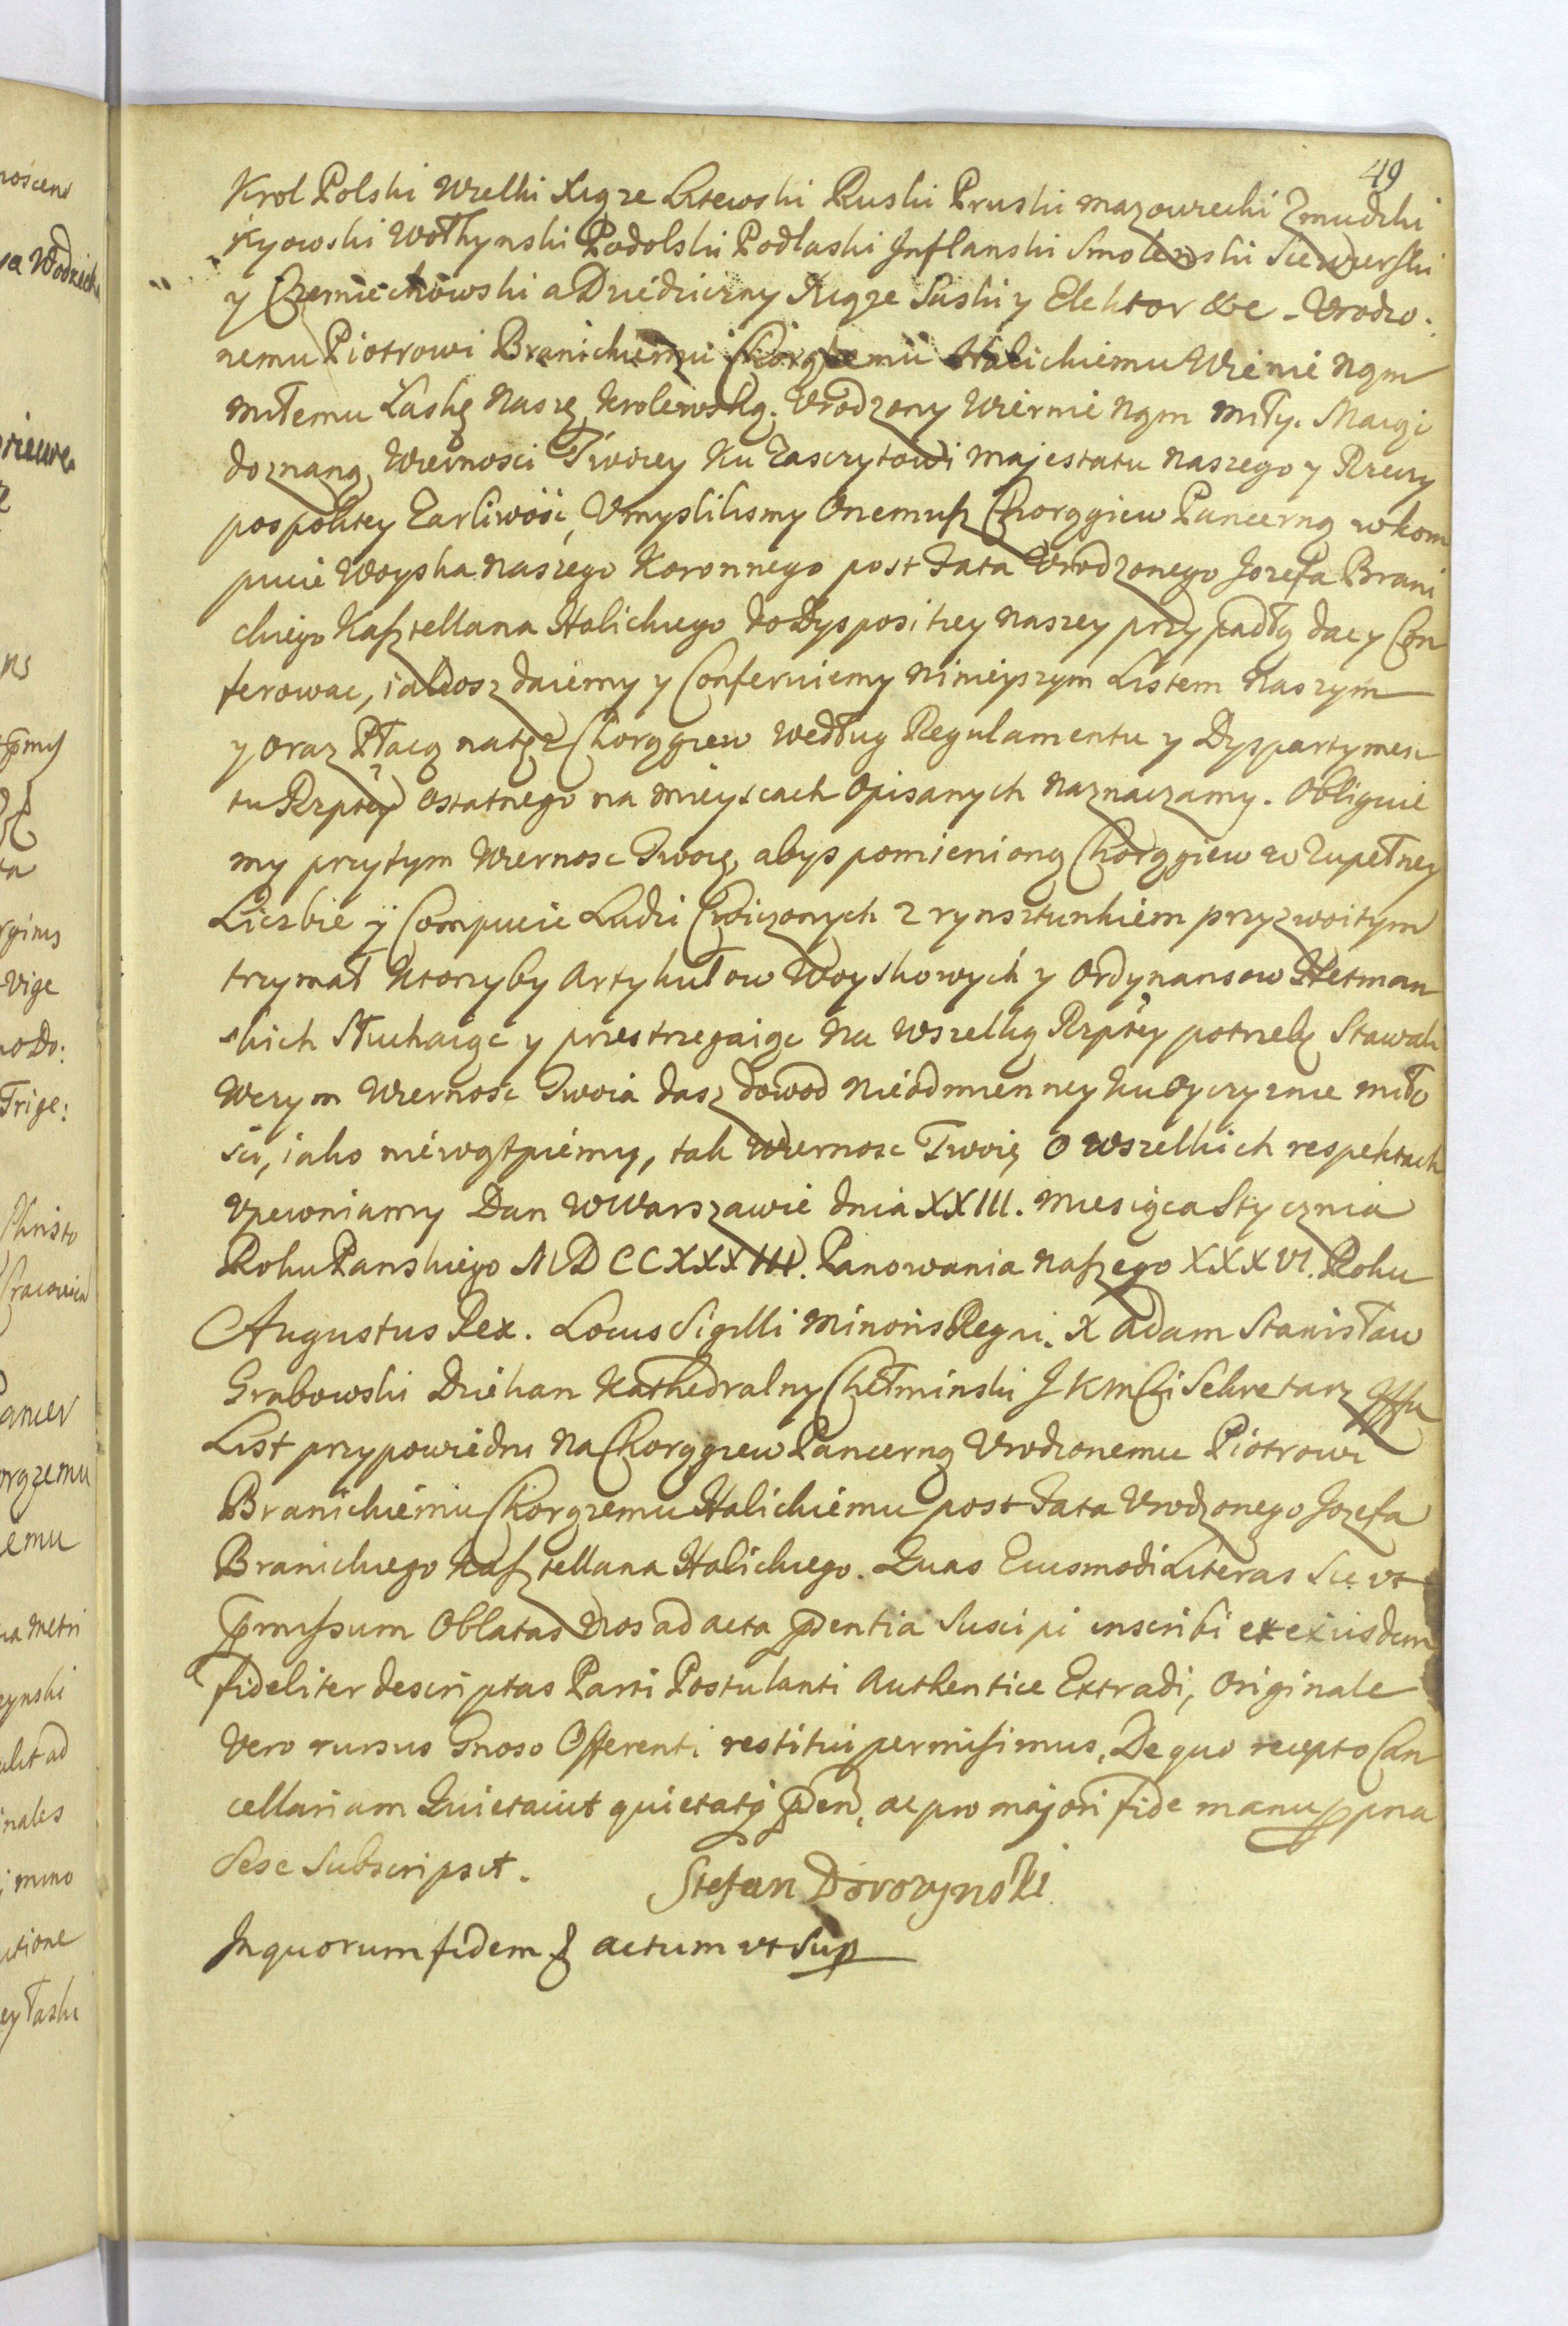 49
Krol Polski Wielki Xiąze Litewski Ruski Pruski mazowiecki Zmudzki
Kyowski Wołhynski Podolski Podlaski Inflanski Smolenski Siewierski
y Czerniechowski a Dziedziczny Xiąze Saski y Elektor &c - Urodzo.
nemu Piotrowi Branickiemu Chorązemu Halickiemu Wiernie Nąm
miłemu Łaskę Naszę Krolewską. Urodzony Wiernie Nąm miły. Maiąc
doznaną Wiernosci Twoiey Ku Zasczytowi Majestatu Naszego y Rzeczy
pospolitey Zarliwość, Umyslilismy Onemusz Chorągiew Pancerną w kom
pucie Woyska Naszego Koronnego post Fata Urodzonego Jozefa Brani
ckiego Kasztellana Halickiego do Dyspositiey Naszey przypadłą dac y Con
ferowac, iakosz daiemy y Conferuiemy Ninieyszym Listem Naszym
y oraz Płacą na tęż Chorągiew według Regulamentu y Dyspartymen
tu Rzptey ostatnego na mieyscach Opisanych Naznaczamy. Obliguie
my przytym Wiernosc Twoię, abys pomienioną Chorągiew w Zupełney
Liczbie y Compucie Ludzi Cwiczonych z rynsztunkiem przyzwoitym
trzymał Ktorzyby Artykułow Woyskowych y Ordynansow Hetman
skich Słuchaiąc y przestrzegaiąc Na Wszelką Rzptey potrzebę Stawali
Wczym Wiernosc Twoia dasz dowod Nieodmienney ku Oyczyznie miło
sci, iako niewątpiemy, tak Wiernosc Twoię O Wszelkich respektach
Upewniamy Dan W Warszawie dnia XXIII. Miesiąca Stycznia
Roku Panskiego MDCCXXXIII. Panowania Naszego XXXVI. Roku
Augustus Rex. Locus Sigilli Minoris Regni. X Adam Stanisław
Grabowski Dziekan Kathedralny Chełminski J K Mści Sekretarz
List przypowiedni Na Chorągiew Pancerną Urodzonemu Piotrowi
Branickiemu Chorązemu Halickiemu post Fata Urodzonego Jozefa
Branickiego Kasztellana Halickiego. Quas Eiusmodi Literas Sic ut
pmissum Oblatas Nos ad acta pdentia Suscipi inscribi et exiisdem
fideliter descriptas Parti Postulanti Authentice Extradi, Originale
Vero rursus Gnoso Offerenti restitui permisimus, De quo recepto Can
cellariam Quietavit quietatq pden, ac pro majori fide manu ppria
Sese Subscripsit. Stefan Dorozynski
In quorum fidem & actum ut Sup